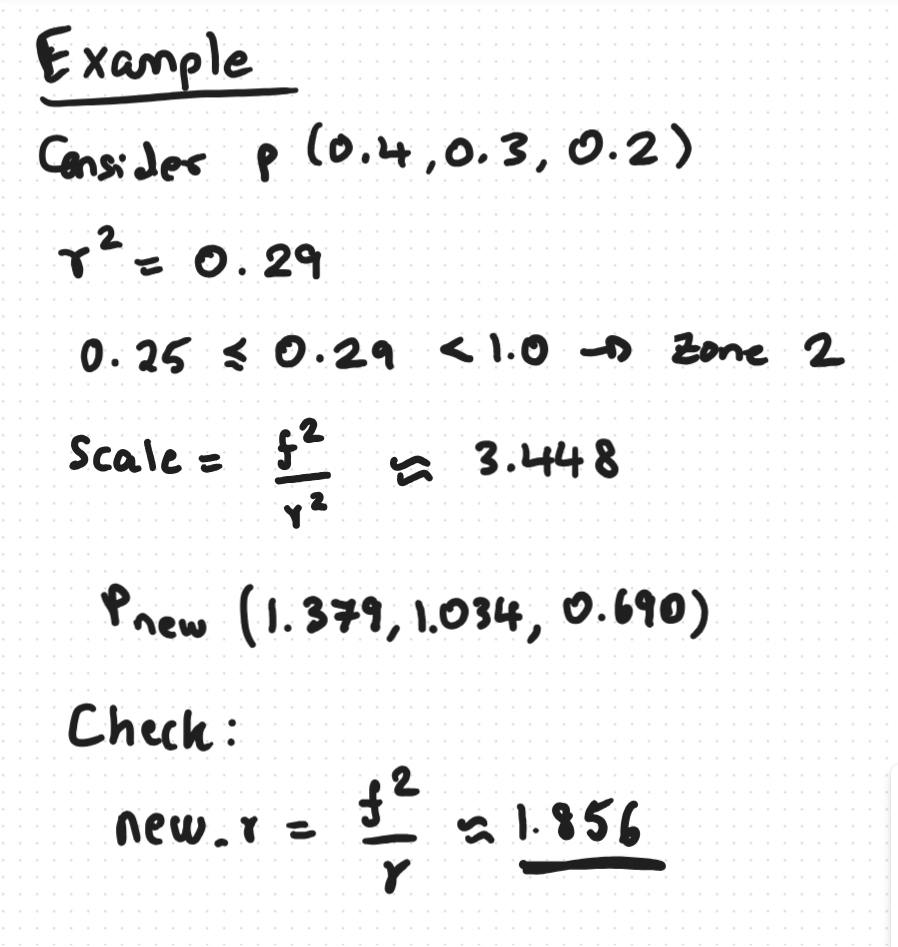 Example
Consider p (0.4,0.3, 0.2)
r² = 0.29
0.25 ≤ 0.29 < 1.0 → Zone 2
Scale = f²/r² ≈ 3.448
Pnew (1.379, 1.034, 0.690)
Check:
new_r = f²/r ≈ 1.856